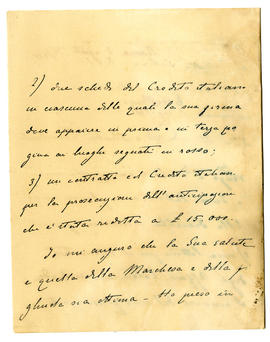 2) due schede del Credito Italiano
in ciascuna delle quali la sua firma
deve apparire in prima e in terza pa
gina ai luoghi segnati in rosso;
3) un contratto col Credito Italiano
per la prosecuzione dell'anticipazione
che è stata ridotta a £ 15.000.
Io mi auguro che la Sua salute
e quella della Marchesa e della f
gliuola sia ottima - Ho preso in